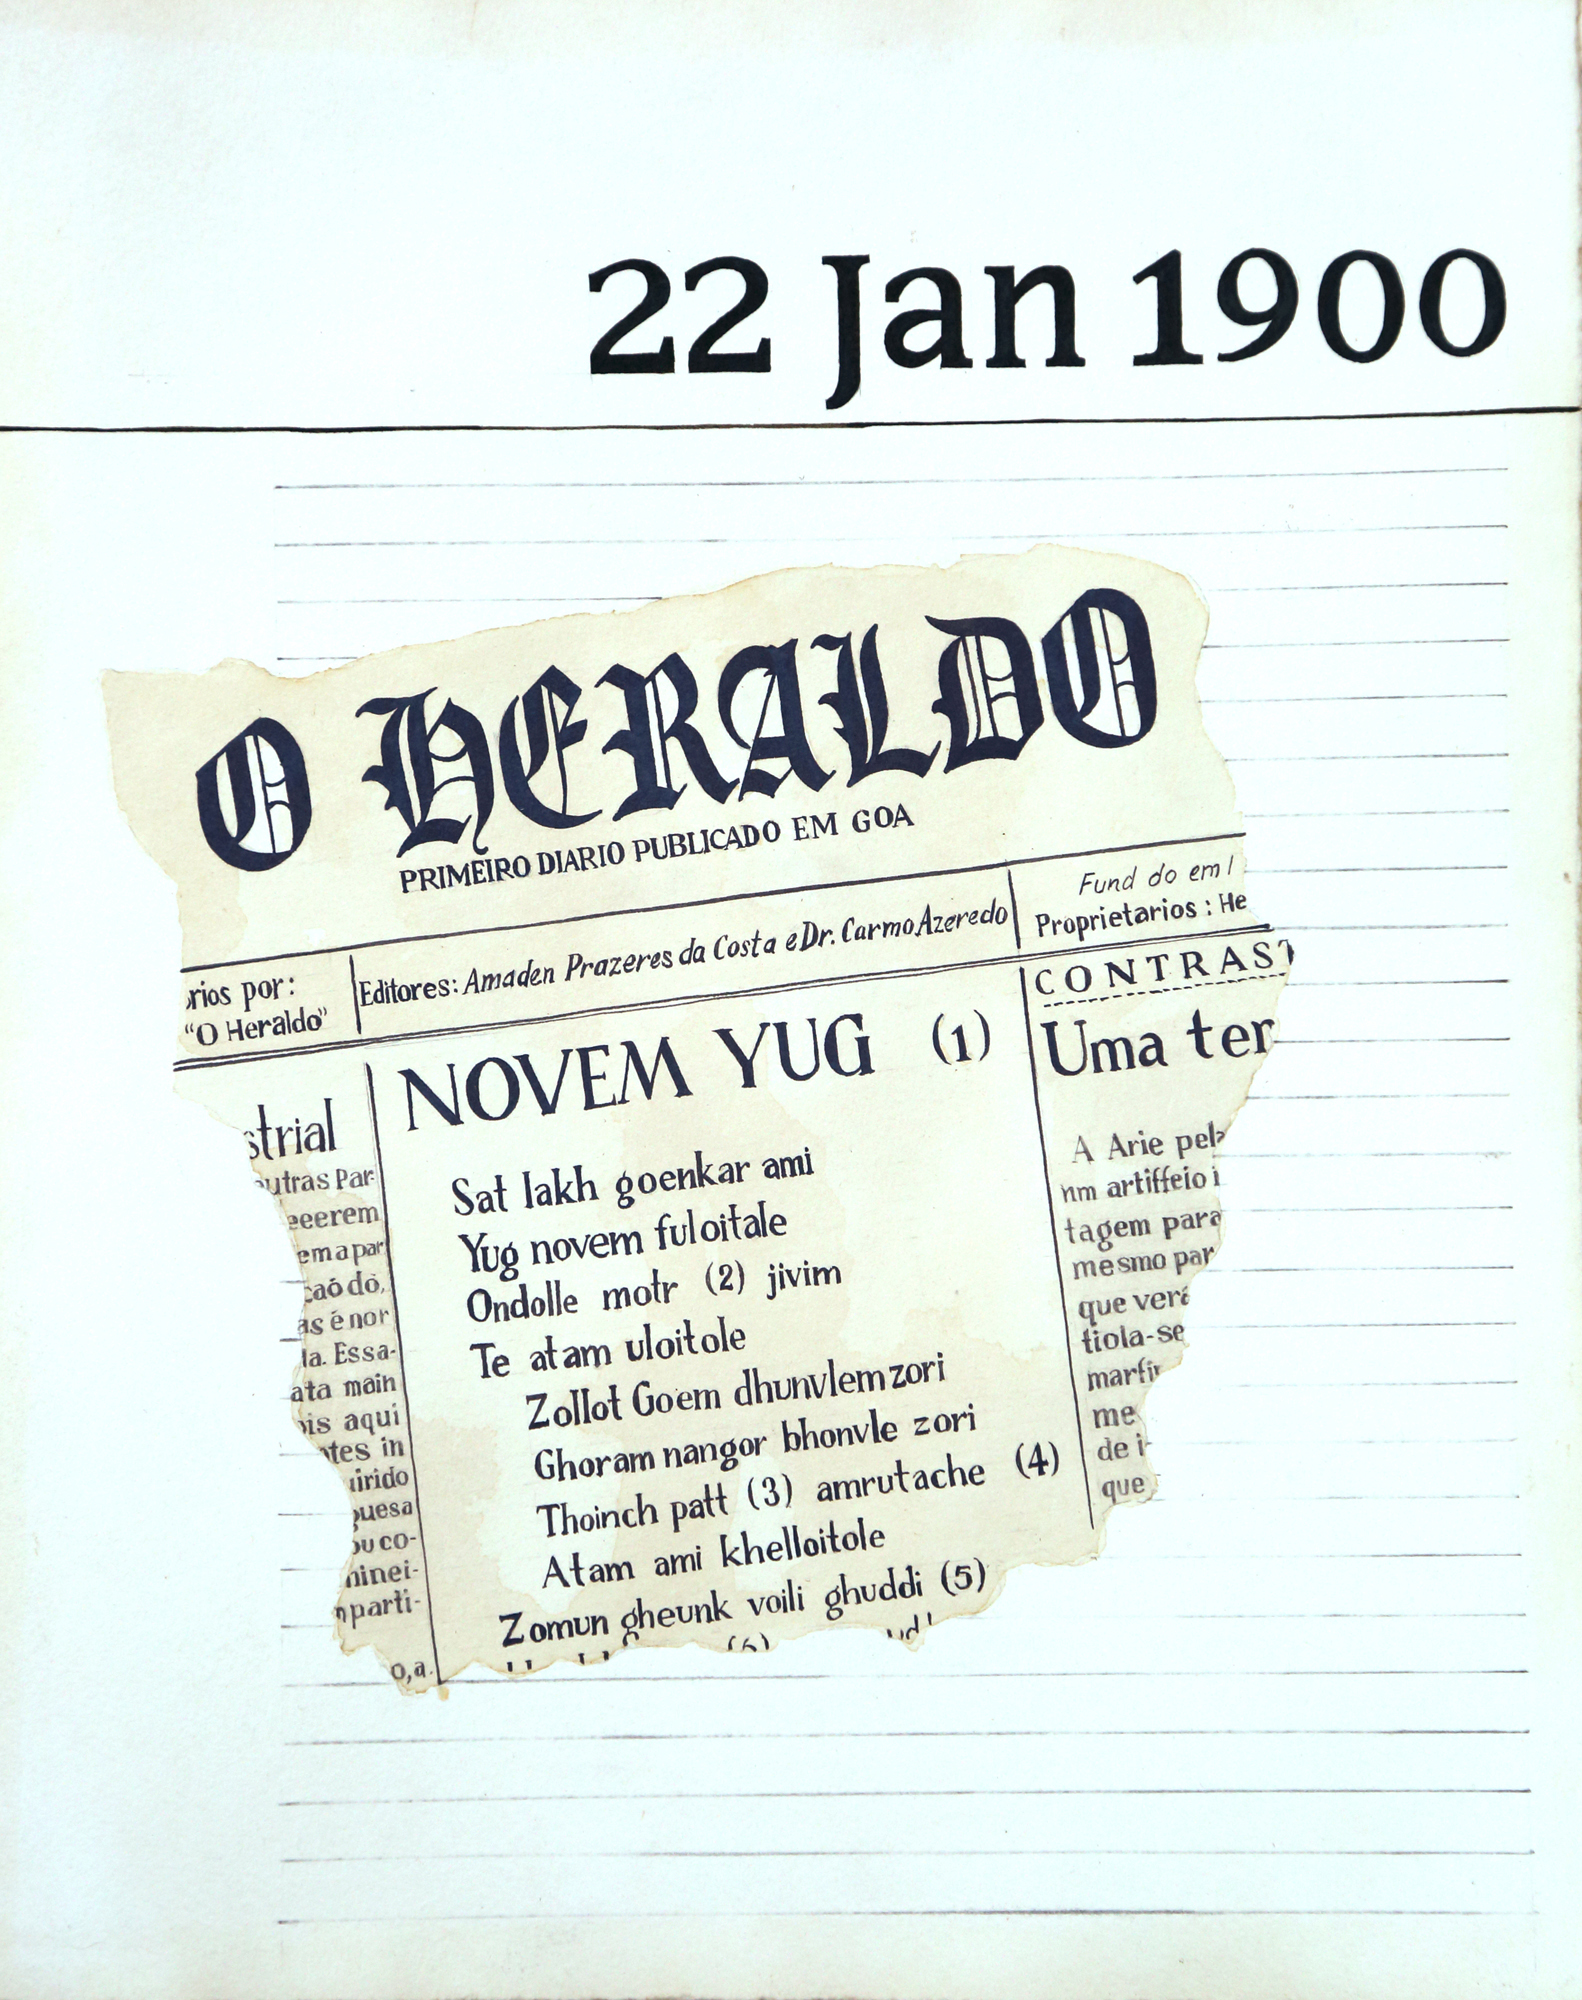 22 Jan 1900
O HERALDO
PRIMEIRO DIARIO PUBLICADO EM GOA
rios por:
"O Heraldo"
Editores: Amaden Prazeres da Costa e Dr. Carmo Azeredo
Fund do em 1
Proprietarios : He
strial
utras Par-
eeerem
em a par
caó do,
as é nor
la. Essa-
ata main
is aqui
tes in
uirido
guesa
ou co-
ninei-
n parti-
o, a.
NOVEM YUG (1)
Sat lakh goenkar ami
Yug novem fuloitale
Ondolle motr (2) jivim
Te atam uloitole
Zollot Goem dhunvlem zori
Ghoram nangor bhonvle zori
Thoinch patt (3) amrutache (4)
Atam ami khelloitole
Zomun gheunk voili ghuddi (5)
(6)
CONTRAST
Uma ter
A Arie pela
nm artiffeio i
tagem para
mesmo par
que vera
tiola-se
marfin
me
de i-
que